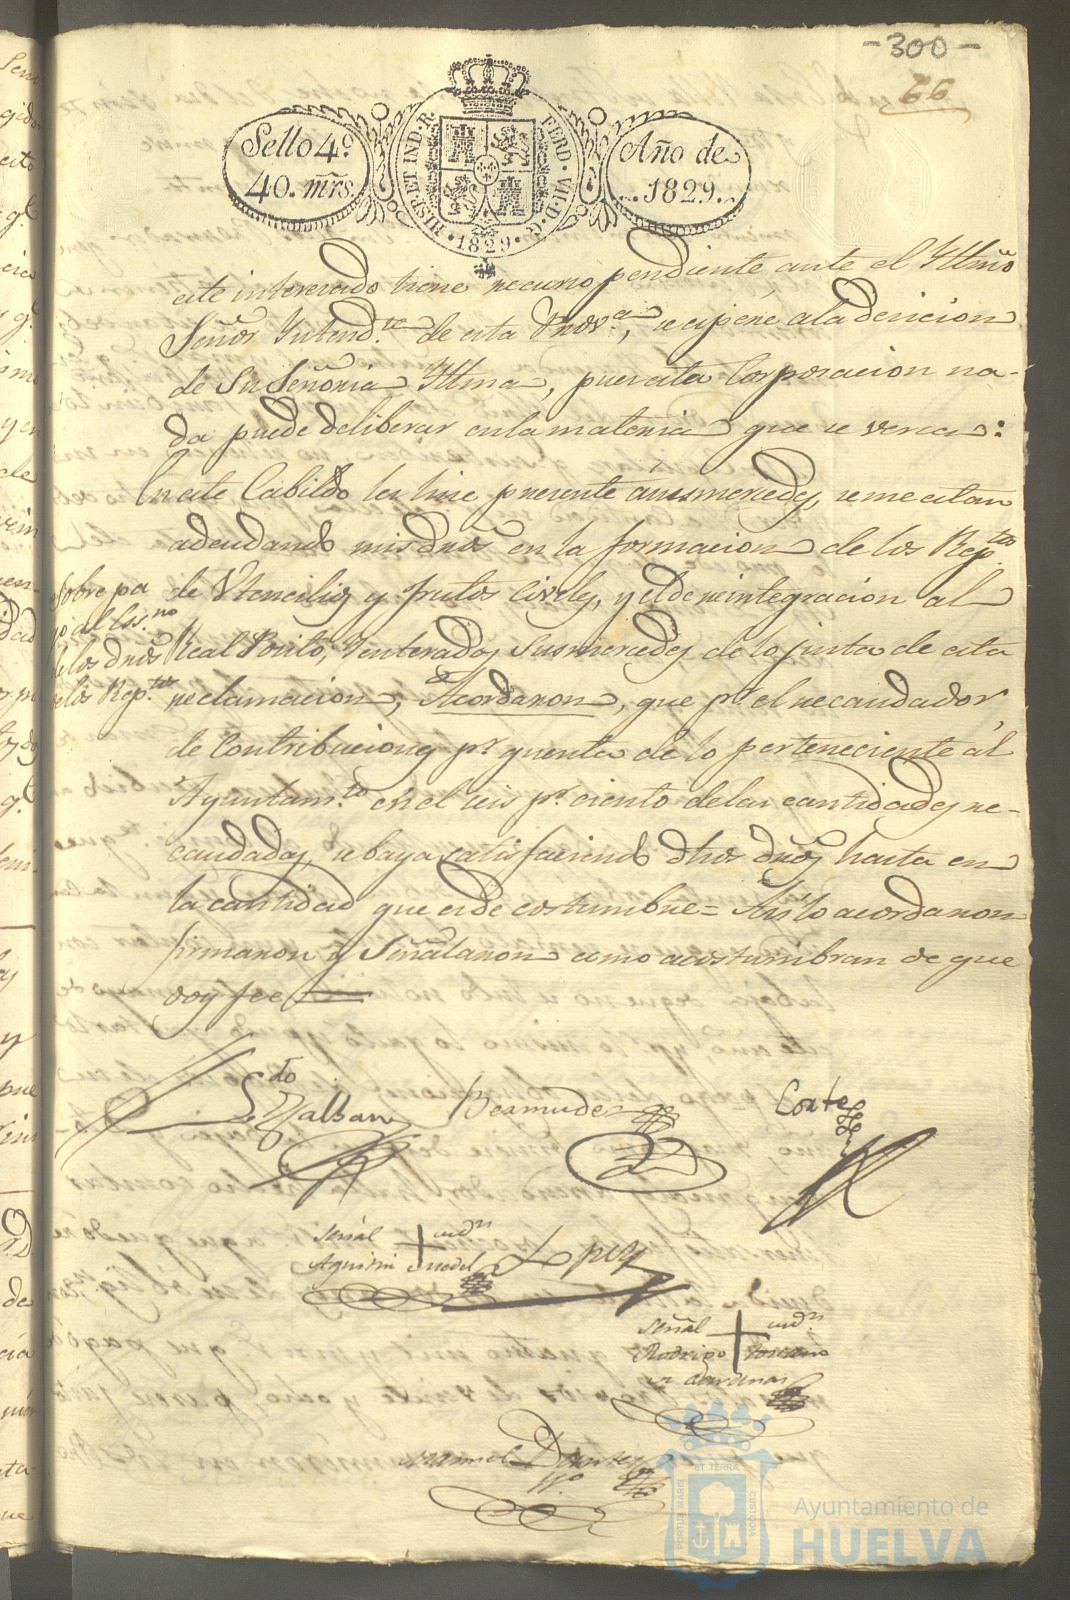 -300-
66
Sello 4º
40. mrs.
HISP. ET IND. R.
FERD. VII. D. G.
·1829·
Año de
1829.
este interesado tiene recurso pendiente, ante el Yltmô
Señor Yntend.te de esta Prov.a, se espere a la decision
de Su Señoria Yltma, pues esta Corporacion na-
da puede deliberar en la materia que se versa:
En este Cabildo les hice presente a sus mercedes, se me estan
adeudando mis dros en la formacion de los Rep.tos
de Utencilios y frutos Civiles, y el de reintegracion al
Real Posito, Y enterados sus mercedes de lo justa de esta
reclamacion, Acordaron, que p.r el recaudador
de Contribuciones p.r quenta de lo perteneciente ál
Ayuntam.to en el seis p.r ciento de las cantidades re-
caudadas, se baya satisfaciendo dhos dros hasta en
la cantidad que es de costumbre = Asi lo acordaron
firmaron y Señalaron como acostumbran de que
doy fee
Sobre pa
go al Ess.no
de los dros
de los Rep.tos
L.do Dalban
Bermudez
Cortes
Señal + de
Agustin
Lopez
Señal + de
Rodrigo Toscano
Cardenas
Manuel Duarte
PORTUS MARIS
ET TERRÆ
CUSTODIA
Ayuntamiento de
HUELVA